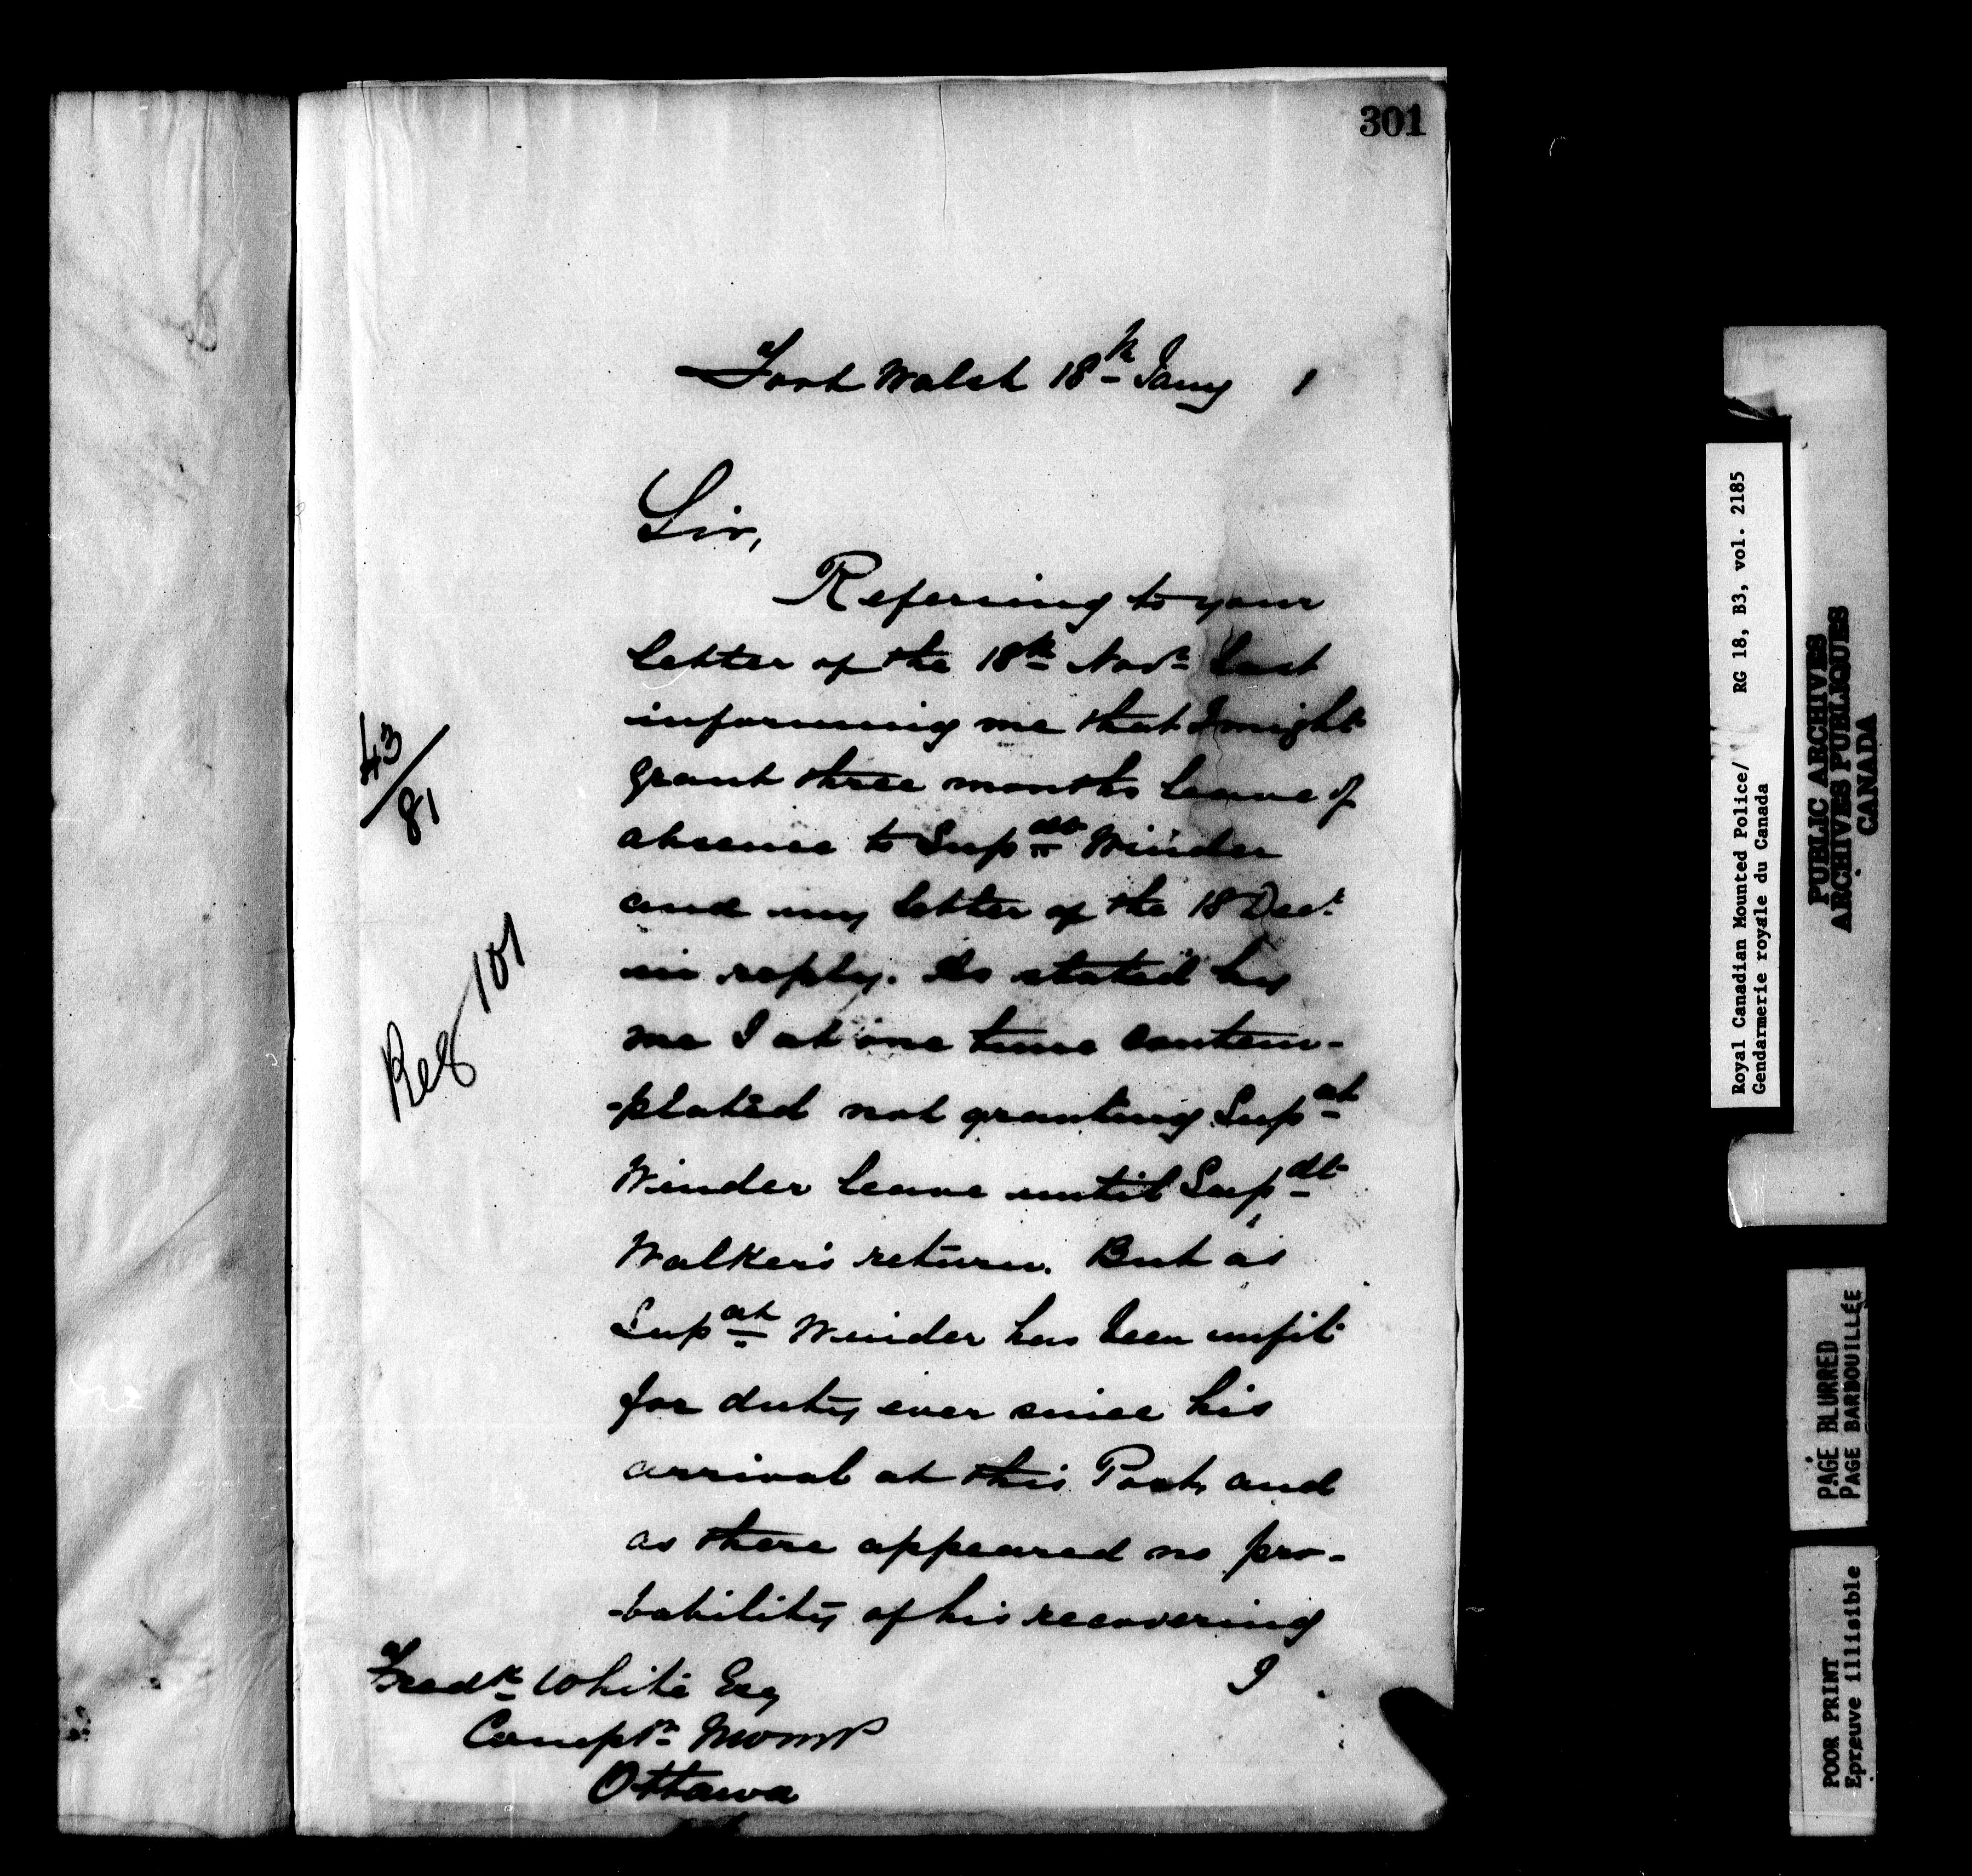 301
Fort Walsh 18th Jany 1
Sir,
Referring to your
letter of the 18th Novr last
informing me that I might
grant three months leave of
absence to Supdt Winder
and my letter of the 18 Decr
in reply. As stated by
me I at one time contem-
-plated not granting Supdt
Winder leave until Supdt
Walker's return. But as
Supdt Winder has been unfit
for duty ever since his
arrival at this Post, and
as there appeared no pro-
-bability of his recovering
I
Fredk White Esq
Comptr NWMP
Ottawa
43/81
Reg 101
Royal Canadian Mounted Police/ RG 18, B3, vol. 2185
Gendarmerie royale du Canada
PUBLIC ARCHIVES
ARCHIVES PUBLIQUES
CANADA
PAGE BLURRED
PAGE BARBOUILLÉE
POOR PRINT
Epreuve illisible